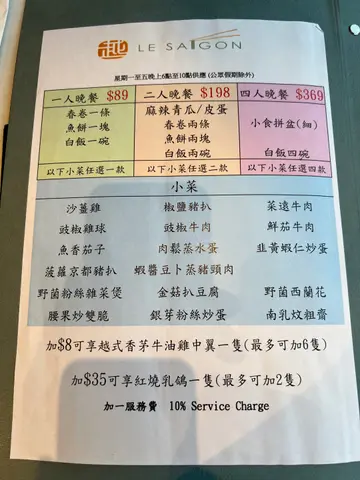 趣 LE SAIGON
星期一至五晚上6點至10點供應 (公眾假期除外)
一人晚餐 $89 二人晚餐 $198 四人晚餐 $369
春卷一條 麻辣青瓜/皮蛋 小食拼盆(細)
魚餅一塊 春卷兩條
白飯一碗 魚餅兩塊
白飯兩碗 白飯四碗
以下小菜任選一款 以下小菜任選二款 以下小菜任選四款
小菜
沙薑雞 椒鹽豬扒 菜遠牛肉
豉椒雞球 豉椒牛肉 鮮茄牛肉
魚香茄子 肉鬆蒸水蛋 韭黃蝦仁炒蛋
菠蘿京都豬扒 蝦醬豆卜蒸豬頸肉
野菌粉絲雜菜煲 金菇扒豆腐 野菌西蘭花
腰果炒雙脆 銀芽粉絲炒蛋 南乳炆粗齋
加$8可享越式香茅牛油雞中翼一隻(最多可加6隻)
加$35可享紅燒乳鴿一隻(最多可加2隻)
加一服務費 10% Service Charge